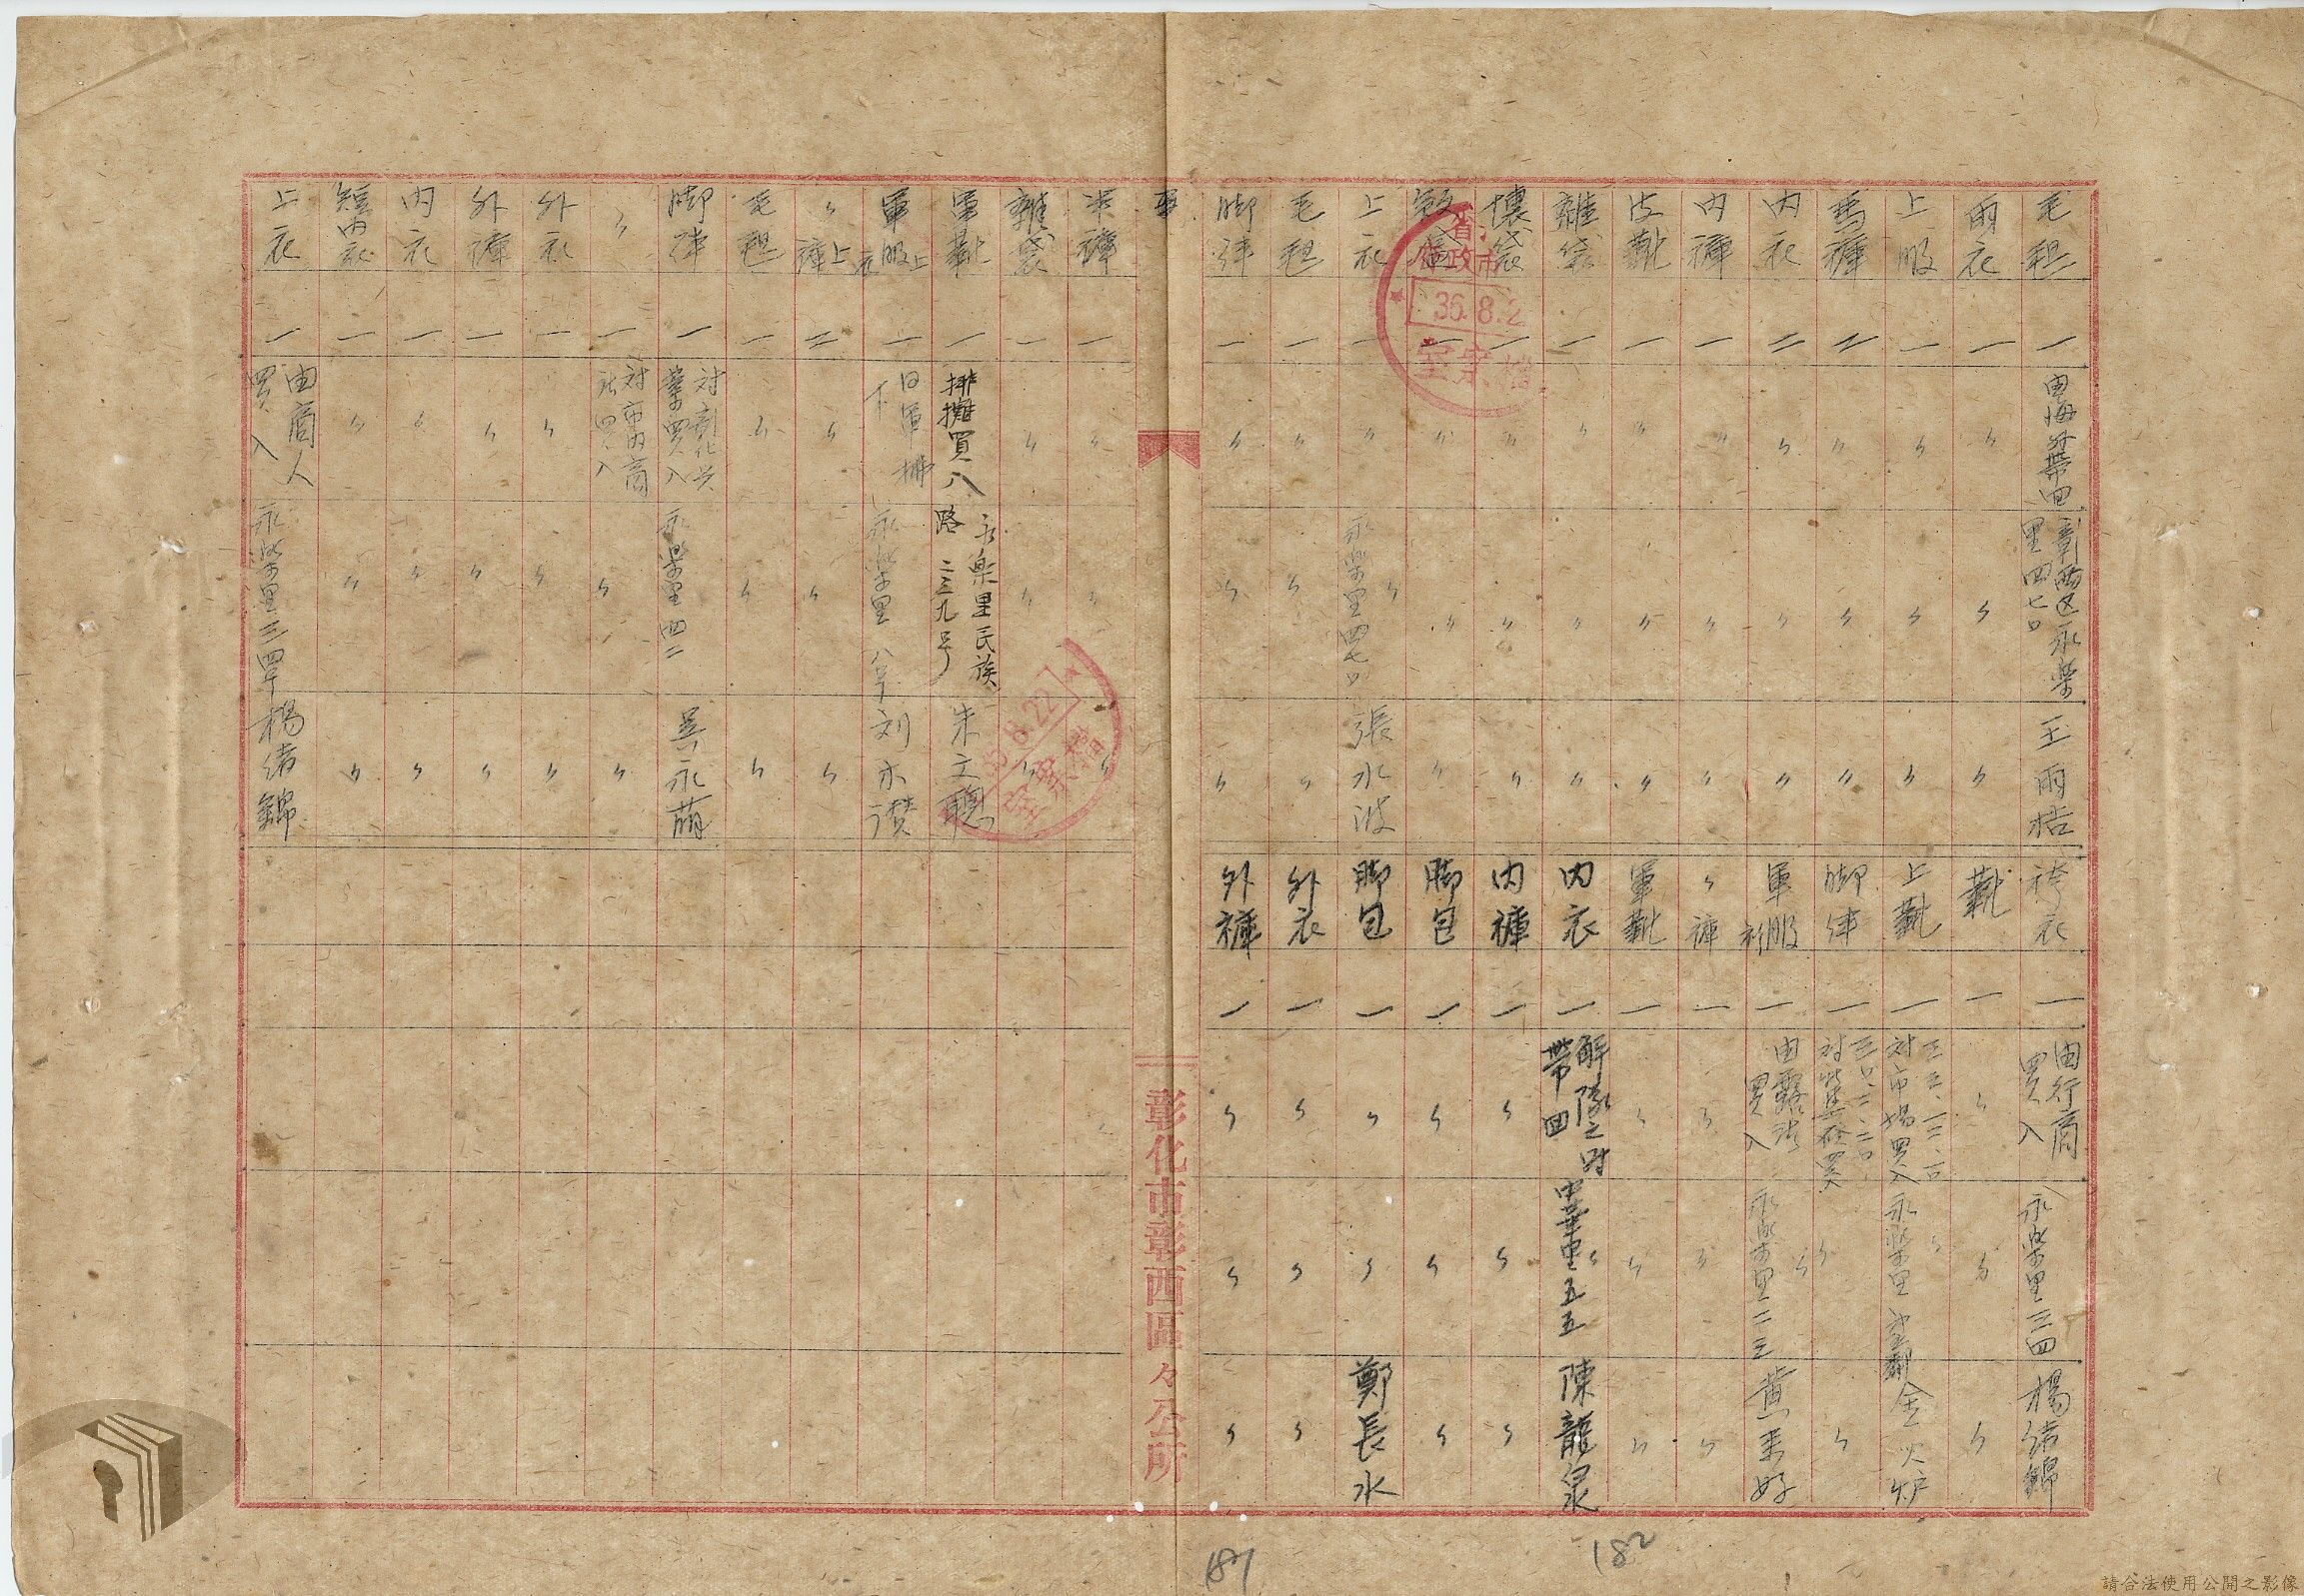 毛毯 一 由海南帶回 彰西区永樂里四七口 王雨桔
雨衣 一 〃 〃 〃
上服 一 〃 〃 〃
馬褲 二 〃 〃 〃
内衣 二 〃 〃 〃
内褲 一 〃 〃 〃
皮靴 一 〃 〃 〃
雜袋 一 〃 〃 〃
壞袋 一 〃 〃 〃
一 〃 〃 〃
上衣 一 〃 永樂里四七口 張水波
毛毯 一 〃 〃 〃
脚絆 一 〃 〃 〃
袴衣 一 由行商買入 永樂里三四 楊緒錦
靴 一 〃 〃 〃
上靴 一 対市場買入 永樂里 金火炉
脚絆 一 〃 〃
軍服衫 一 由露店買入 永樂里二三 黄玉好
〃褲 一 〃 〃 〃
軍靴 一 〃 〃 〃
内衣 一 解隊之時帶回 中華里五五 陳龍泉
内褲 一 〃 〃 〃
脚包 一 〃 〃 〃
脚包 一 〃 〃 鄭長水
外衣 一 〃 〃 〃
外褲 一 〃 〃 〃
軍
彰化市彰西區々公所
褲 一 〃 〃 〃
雜袋 一 〃 〃 〃
軍靴 一 排攤買入 永樂里民族路二三九号 朱文聰
軍服上衣 一 日軍拂下 永樂里八号 刘木讚
〃上褲 二 〃 〃 〃
毛毯 一 〃 〃 〃
脚絆 一 対彰化共業買入 永樂里四二 吳永萠
〃 一 対市内商店買入 〃 〃
外衣 一 〃 〃 〃
外褲 一 〃 〃 〃
内衣 一 〃 〃 〃
短内衣 一 〃 〃 〃
上衣 一 由商人買入 永樂里三四 楊緒錦
36.8.2
檔案室
8.22
檔案室
187
182
請合法使用公開之影像